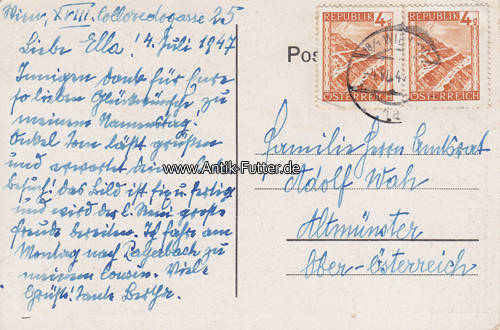 Wien, XVIII. Colloredogasse 25
Liebe Ella! 4. Juli 1947
Innigen Dank für Eure
so lieben Glückwünsche zu
meinem Namenstag!
Onkel Tom läßt grüßen
und erwartet dein
Besuch! Das Bild ist fertig
und wird der l. große
Freude bereiten. Ich fahre am
Montag nach zu
meinem Cousin. Viele
Grüße! Tante Bertha.
Pos
REPUBLIK 4g
ÖSTERREICH
REPUBLIK 4g
ÖSTERREICH
Familie Herrn Amtsrat
Adolf Wah
Altmünster
Ober-Österreich
www.Antik-Futter.de